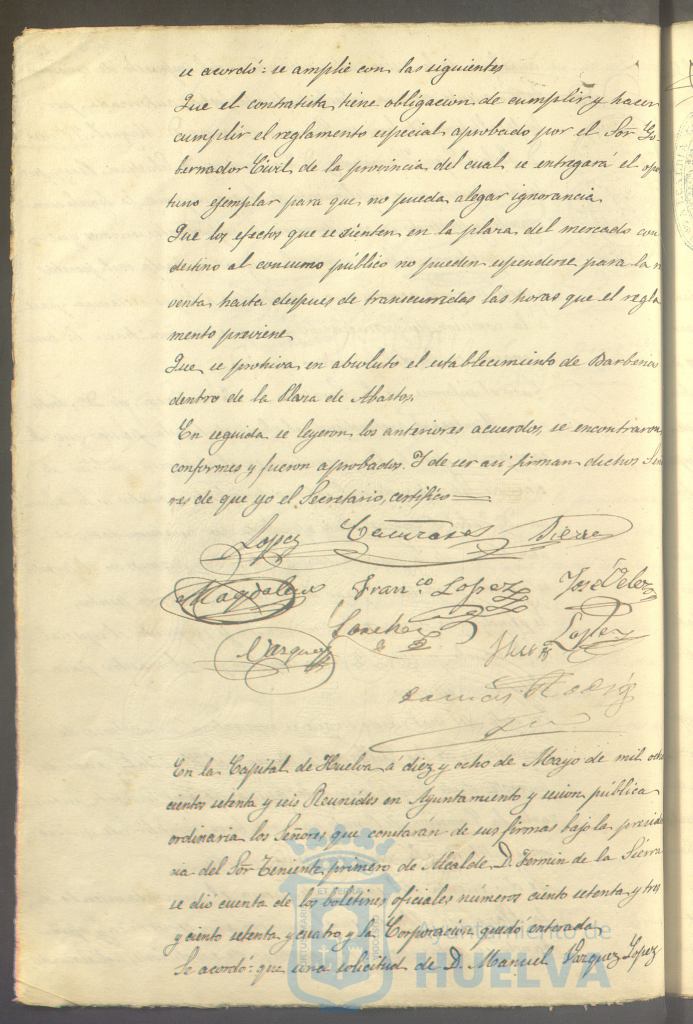 se acordó: se amplie con las siguientes
Que el contratista tiene obligacion de cumplir y hacer
cumplir el reglamento especial aprobado por el Sor Go-
bernador Civil de la provincia del cual se entregará el opor
tuno ejemplar para que no pueda alegar ignorancia
Que los efectos que se sienten en la plaza del mercado con
destino al consumo público no pueden espenderse para la re
venta hasta despues de transcurridas las horas que el regla
mento previene
Que se prohiva en absoluto el establecimiento de Barberias
dentro de la Plaza de Abastos.
En seguida se leyeron los anteriores acuerdos, se encontraron
conformes y fueron aprobados. Y de ser asi firman dichos Seño
res de que yo el Secretario, certifico
Lopez Sierra
Magdalena Fran.co Lopez José Velez
Sanchez Lopez
Vazquez
En la Capital de Huelva á diez y ocho de Mayo de mil ocho
cientos setenta y seis Reunidos en Ayuntamiento y sesion pública
ordinaria los Señores que constarán de sus firmas bajo la presiden
cia del Sor Teniente primero de Alcalde D. Fermin de la Sierra
se dió cuenta de los boletines oficiales números ciento setenta y tres
y ciento setenta y cuatro, y la Corporacion quedó enterada
Se acordó: que una solicitud de D. Manuel Vazquez Lopez
Ayuntamiento de
HUELVA